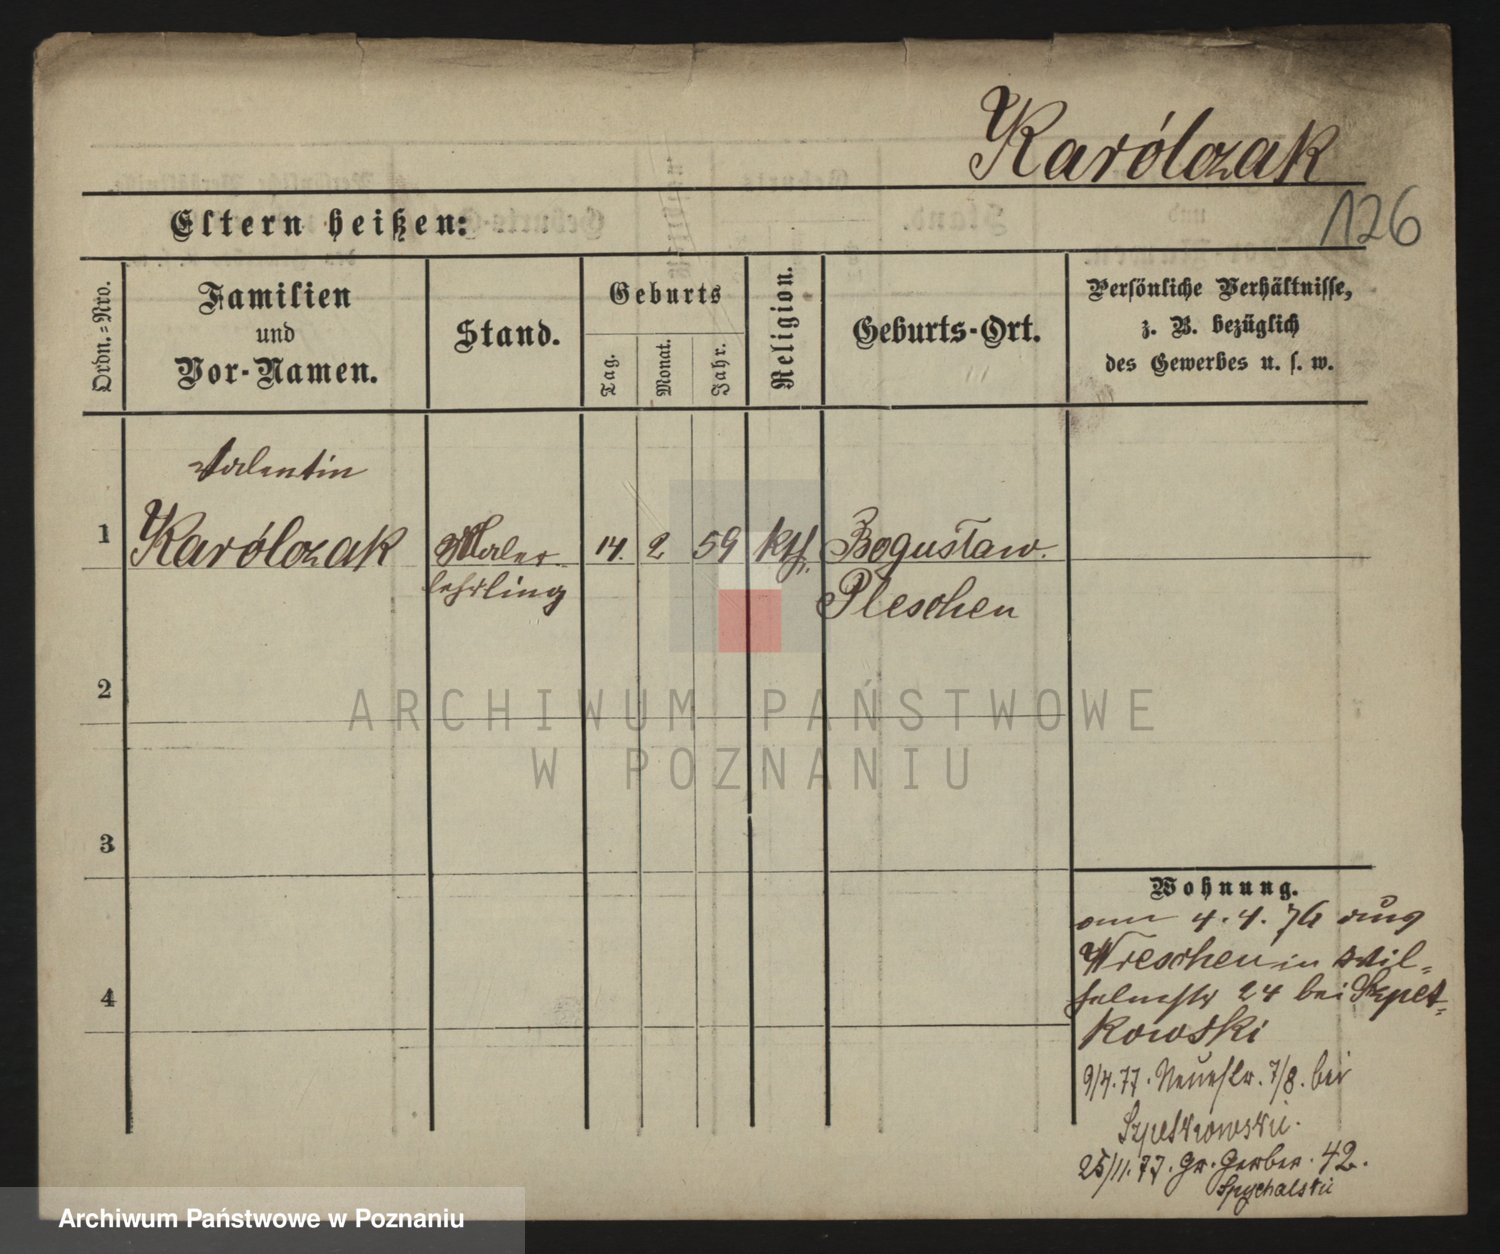 Karólczak
126
Eltern heißen:
Ordn.=Nro.
Familien
und
Vor-Namen.
Stand.
Geburts
Tag.
Monat.
Jahr.
Religion.
Geburts-Ort.
Persönliche Verhältnisse,
z. B. bezüglich
des Gewerbes u. s. w.
Valentin
1 Karólczak Maler- 14. 2 59 kth. Bogusław.
lehrling Pleschen
2
ARCHIWUM PAŃSTWOWE
W POZNANIU
3
4
Wohnung.
am 4.4.76 aus
Wreschen in Wil-
helmstr 24 bei Szpet-
kowski
9/4.77. Neuestr. 7/8. bei
Szpetkowski.
25/11.77. Gr. Gerber. 42.
Spychalski
Archiwum Państwowe w Poznaniu